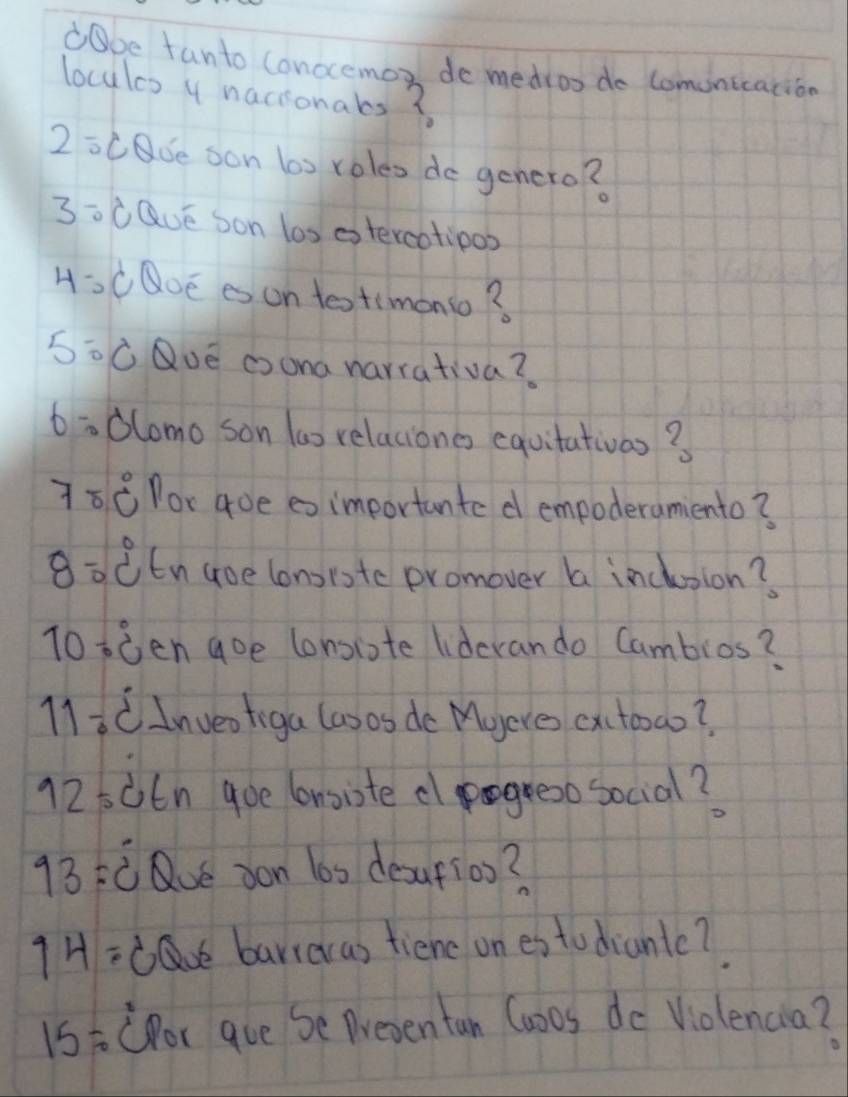 ¿Que tanto conocemos de medios de comunicación
locales y nacionales?
2=¿Qué son los roles de genero?
3=¿Qué son los estereotipos
4=¿Qué es un testimonio?
5=¿Qué es una narrativa?
6=¿Como son las relaciones equitativas?
7=¿Por que es importante el empoderamiento?
8=¿En que consiste promover la inclusion?
10=¿en que consiste liderando Cambios?
11=¿Investiga casos de Mujeres exitosas?
12=¿En que consiste el pogreso social?
13=¿Qué son los desafios?
14=¿Qué barreras tiene un estudiante?
15=¿Por que Se Presentan Casos de Violencia?